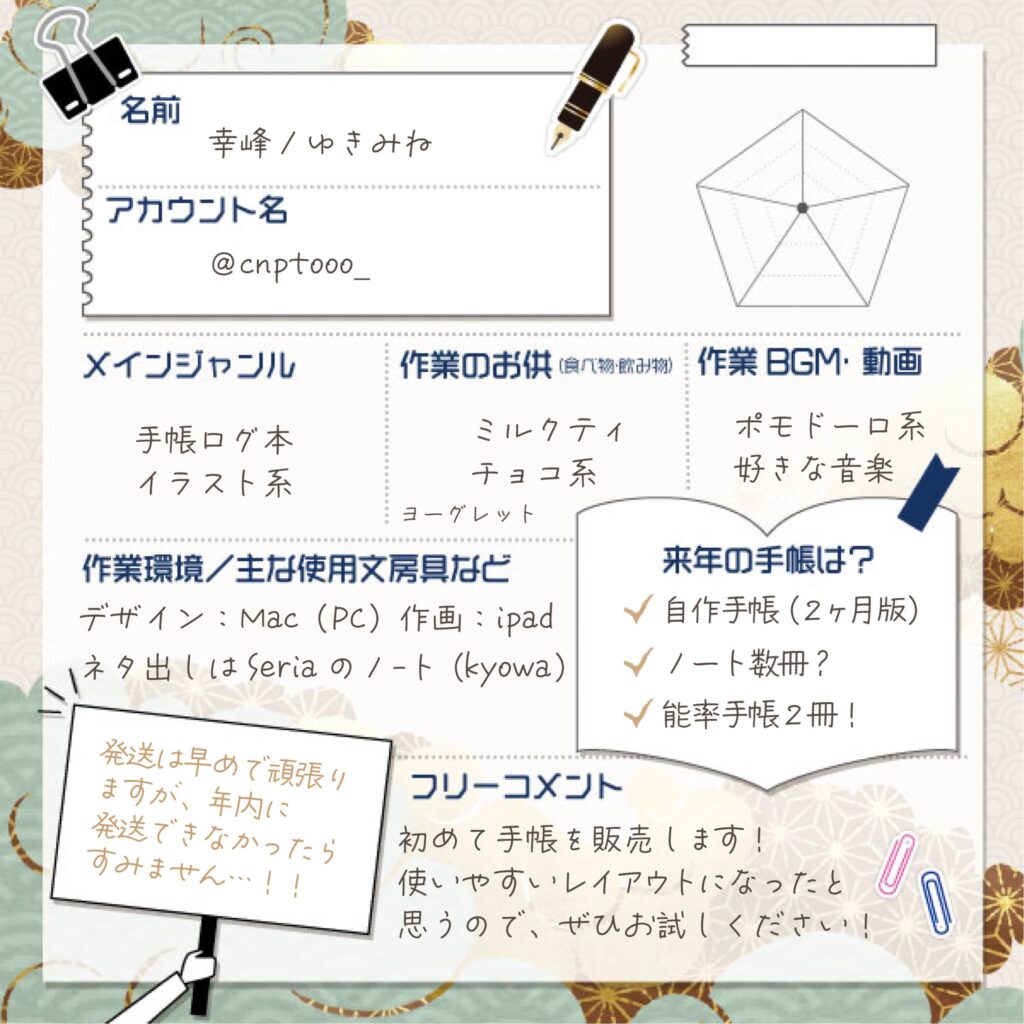 名前
幸峰 / ゆきみね
アカウント名
@cnptooo_
メインジャンル
手帳ログ本
イラスト系
作業のお供(食べ物・飲み物)
ミルクティ
チョコ系
ヨーグレット
作業 BGM・動画
ポモドーロ系
好きな音楽
作業環境/主な使用文房具など
デザイン:Mac(PC)作画:ipad
ネタ出しはSeriaのノート(kyowa)
来年の手帳は?
自作手帳(2ヶ月版)
ノート数冊?
能率手帳2冊!
発送は早めで頑張り
ますが、年内に
発送できなかったら
すみません…!!
フリーコメント
初めて手帳を販売します!
使いやすいレイアウトになったと
思うので、ぜひお試しください!